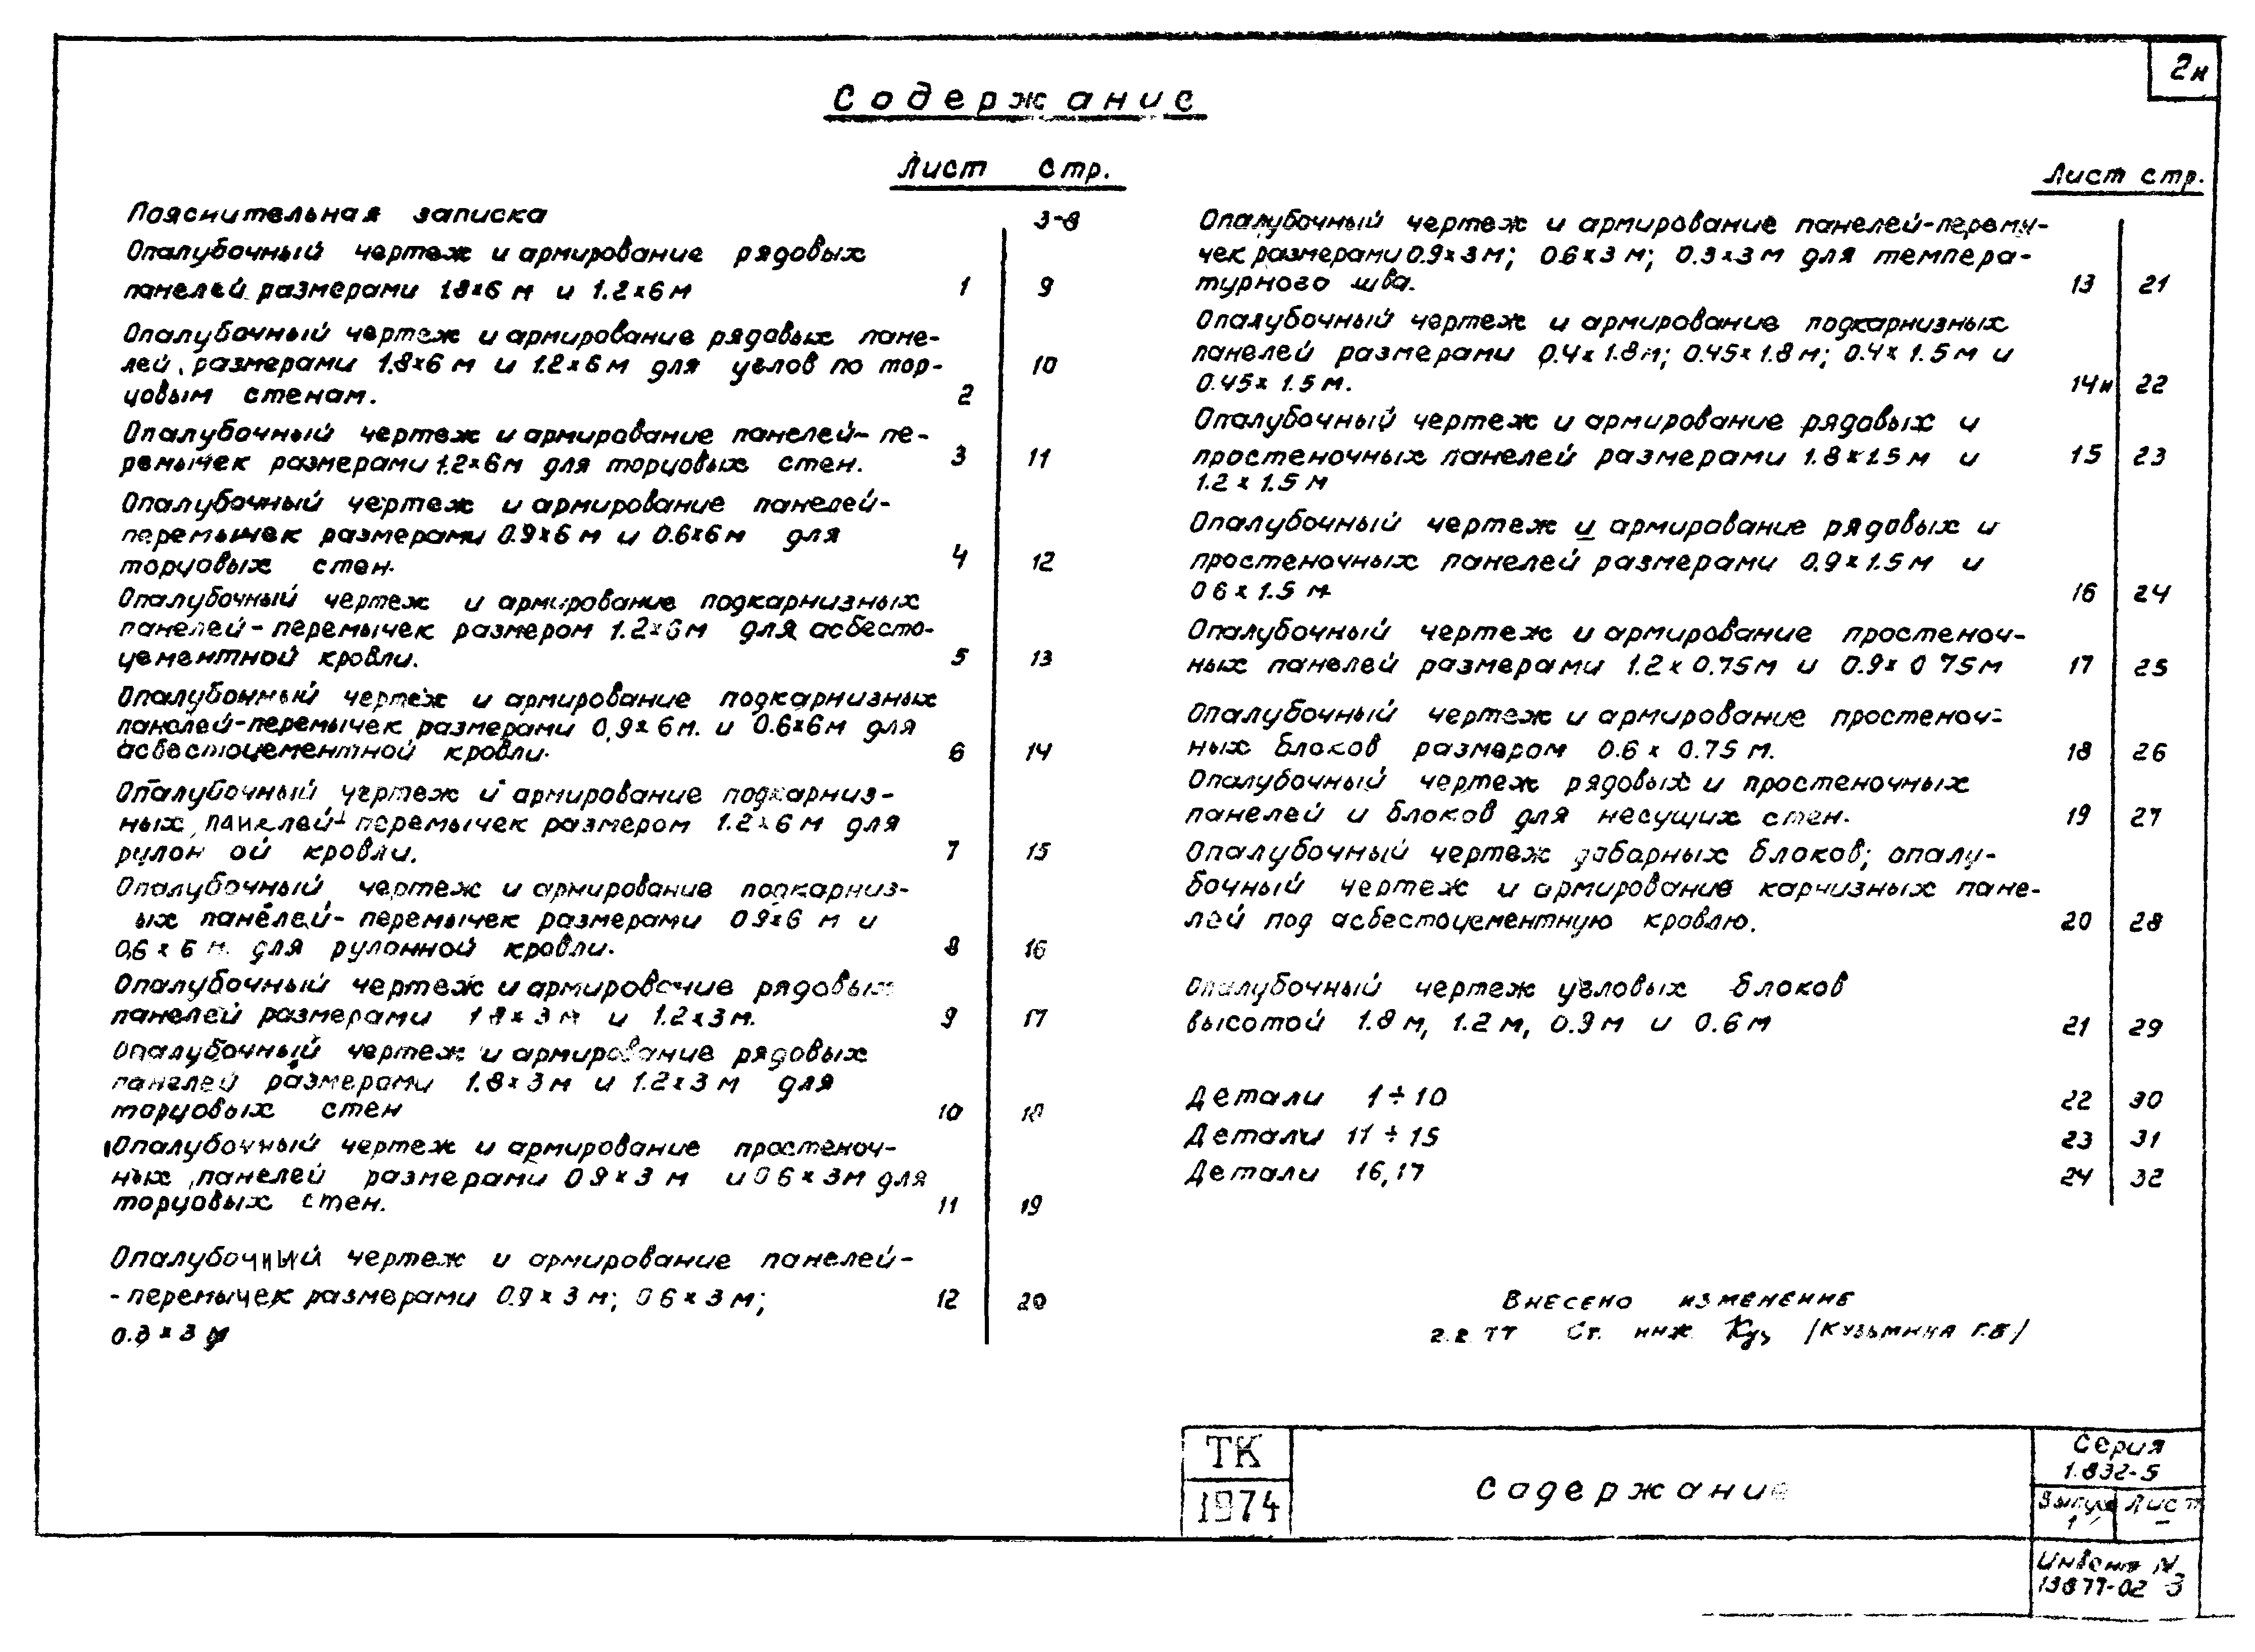 2н
Содержание
Лист Стр.
Пояснительная записка 3-8
Опалубочный чертеж и армирование рядовых
панелей размерами 1.8×6 м и 1.2×6 м 1 9
Опалубочный чертеж и армирование рядовых пане-
лей размерами 1.8×6 м и 1.2×6 м для углов по тор- 10
цовым стенам. 2
Опалубочный чертеж и армирование панелей-пе-
ремычек размерами 1.2×6м для торцовых стен. 3 11
Опалубочный чертеж и армирование панелей-
перемычек размерами 0.9×6 м и 0.6×6 м для
торцовых стен. 4 12
Опалубочный чертеж и армирование подкарнизных
панелей-перемычек размером 1.2×6м для асбесто-
цементной кровли. 5 13
Опалубочный чертеж и армирование подкарнизных
панелей-перемычек размерами 0,9×6м. и 0.6×6м для
асбестоцементной кровли. 6 14
Опалубочный чертеж и армирование подкарниз-
ных панелей-перемычек размером 1.2×6 м для
рулон ой кровли. 7 15
Опалубочный чертеж и армирование подкарниз-
ых панелей-перемычек размерами 0.9×6 м и
0,6×6 м. для рулонной кровли. 8 16
Опалубочный чертеж и армирование рядовых
панелей размерами 1.8×3м и 1.2×3м. 9 17
Опалубочный чертеж и армирование рядовых
панелей размерами 1.8×3м и 1.2×3 м для
торцовых стен 10 18
Опалубочный чертеж и армирование простеноч-
ных панелей размерами 0.9×3 м и 0.6×3м для
торцовых стен. 11 19
Опалубочный чертеж и армирование панелей-
-перемычек размерами 0.9×3 м; 0.6×3 м; 12 20
0.3×3 м
Лист стр.
Опалубочный чертеж и армирование панелей-перемы-
чек размерами 0.9×3м; 0.6×3 м; 0.3×3 м для темпера-
турного шва. 13 21
Опалубочный чертеж и армирование подкарнизных
панелей размерами 0.4×1.8м; 0.45×1.8 м; 0.4×1.5 м и
0.45×1.5 м. 14н 22
Опалубочный чертеж и армирование рядовых и
простеночных панелей размерами 1.8×1.5 м и 15 23
1.2×1.5 м
Опалубочный чертеж и армирование рядовых и
простеночных панелей размерами 0.9×1.5 м и
0.6×1.5 м 16 24
Опалубочный чертеж и армирование простеноч-
ных панелей размерами 1.2×0.75м и 0.9×0.75м 17 25
Опалубочный чертеж и армирование простеноч-
ных блоков размером 0.6×0.75 м. 18 26
Опалубочный чертеж рядовых и простеночных
панелей и блоков для несущих стен. 19 27
Опалубочный чертеж доборных блоков; опалу-
бочный чертеж и армирование карнизных пане-
лей под асбестоцементную кровлю. 20 28
Опалубочный чертеж угловых блоков
высотой 1.8 м, 1.2 м, 0.9 м и 0.6 м 21 29
Детали 1÷10 22 30
Детали 11÷15 23 31
Детали 16,17 24 32
Внесено изменение
2.2 77 Ст. инж. Куз /Кузьмина Г.В/
ТК
1974
Содержание
Серия
1.832-5
Выпуск Лист
1 –
Инвентя N
13877-02 3